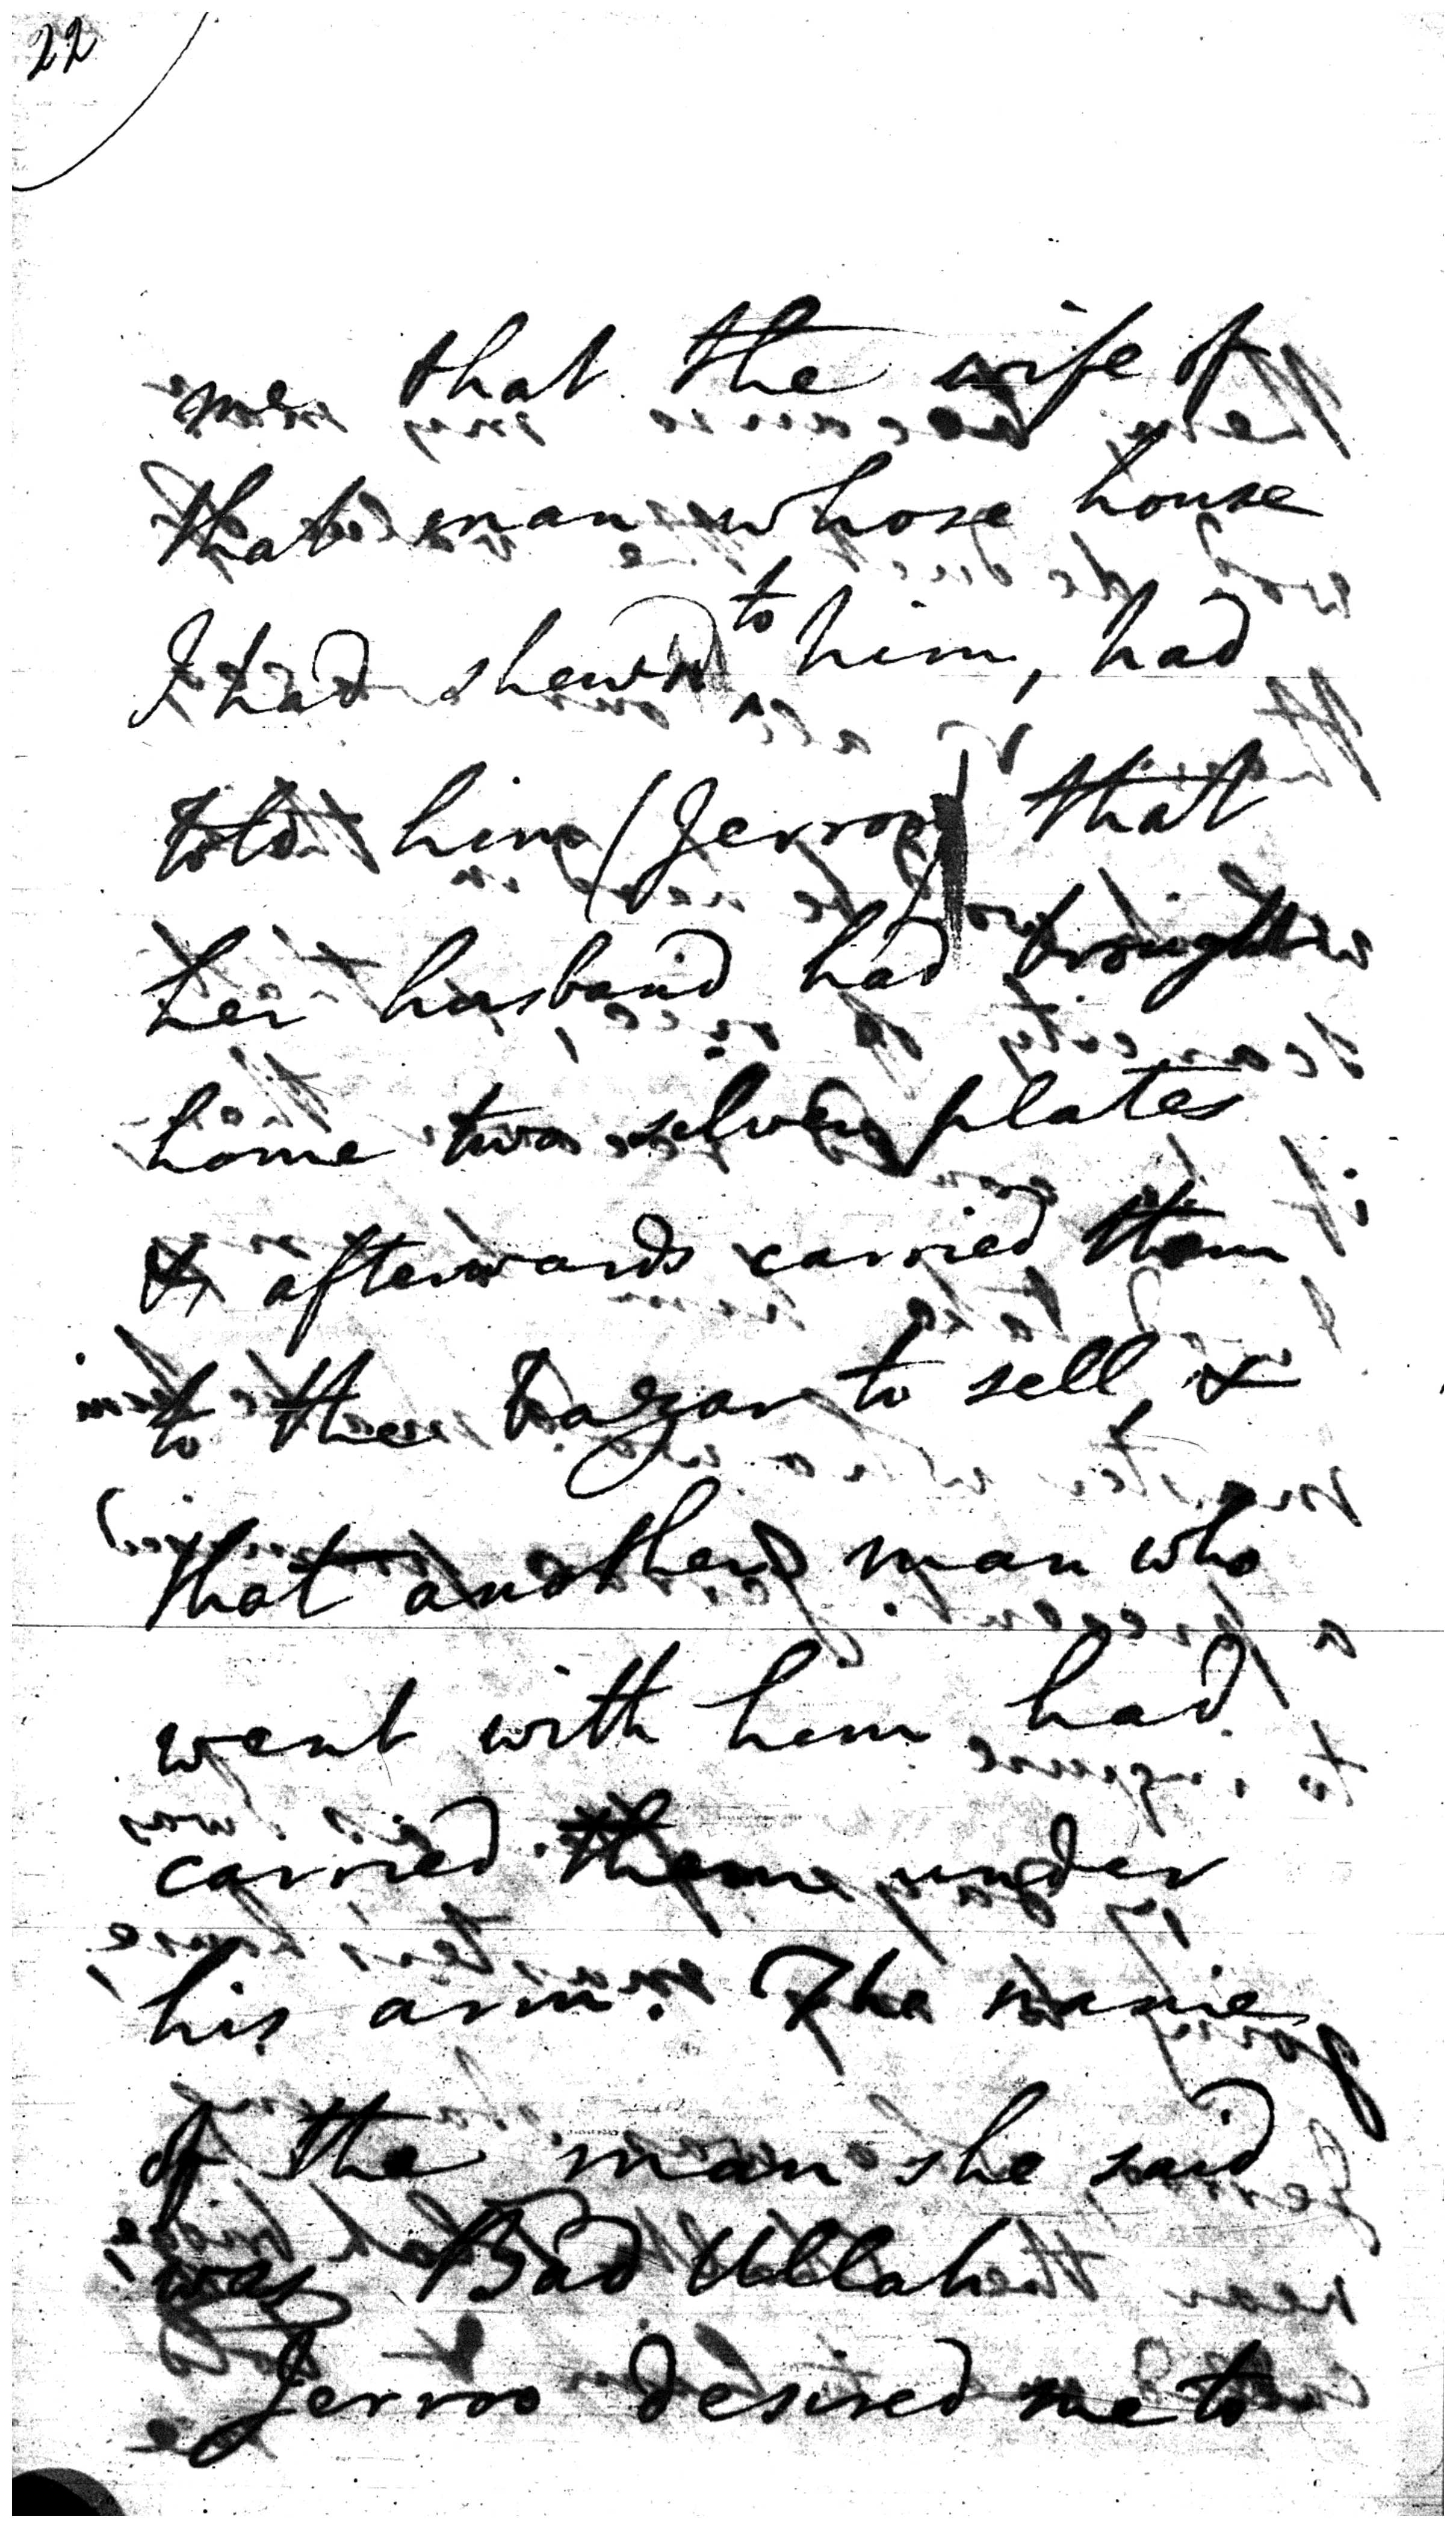 22
me that the wife of
that man whose house
I had shewn to him, had
told him (Jerroo) that
her husband had brought
home two silver plates
& afterwards carried them
to the bazar to sell, &
that another man who
went with him had
carried them under
his arm. The name
of the man she said
was Bad Ullah
Jerroo desired me to